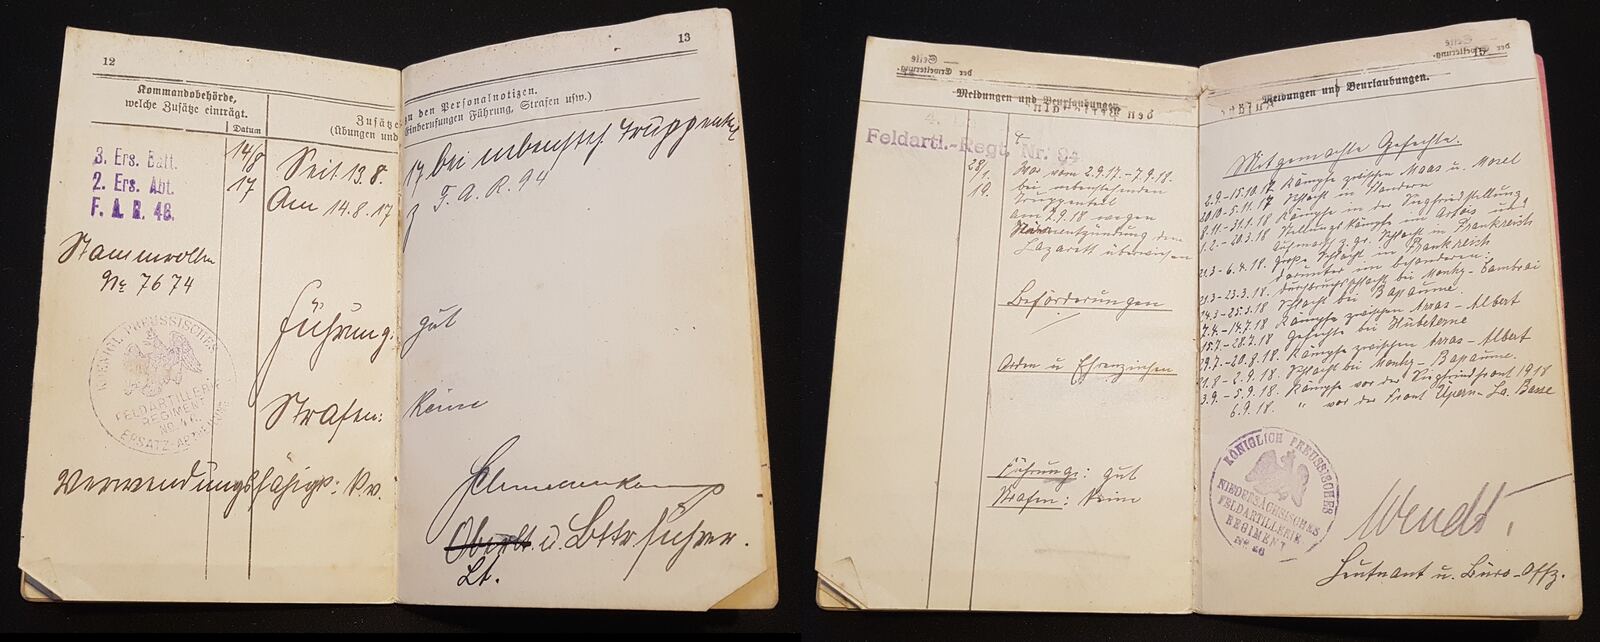 12
Kommandobehörde,
welche Zusätze einträgt.
Datum
Zusätze
(Übungen und
3. Ers. Batt.
2. Ers. Abt.
F. A. R. 46.
14/8
17
Seit 13.8.
Am 14.8.17
Stammrollen
Nr. 7674
Führung:
KÖNIGL. PREUSSISCHES
FELDARTILLERIE
REGIMENT
ERSATZ-ABTEILUNG
Strafen:
Verwendungsfähigk: k.v.
13
zu den Personalnotizen.
Einberufungen Führung, Strafen usw.)
17 bei nebensteh. Truppenteil
F. A. R. 94
gut
Keine
Oberlt. u. Bttr. führer.
Lt.
Seite
der Erweiterung.
Meldungen und Beurlaubungen.
Feldartl.-Regt. Nr. 94
28/
1.
19.
War vom 2.9.17.-7.9.18.
bei nebenstehenden
Truppenteil
am 7.9.18 wegen
dem
Lazarett überwiesen
Beförderungen
Orden u Ehrenzeichen
Führung: gut
Strafen: Keine
Seite
der Erweiterung.
Meldungen und Beurlaubungen.
Mitgemachte Gefechte.
2.9.-15.10.17 Kämpfe zwischen Maas u. Mosel
20.10-5.11.17 Schlacht in Flandern
8.11-31.1.18 Kämpfe in der Siegfriedstellung
1.2.-20.3.18 Stellungskämpfe im Artois und
Aufmarsch z. gr. Schlacht in Frankreich
21.3-6.4.18. Große Schlacht in Frankreich
darunter im besonderen:
21.3-23.3.18. Durchbruchschlacht bei Monchy-Cambrai
24.3-25.3.18 Schlacht bei Bapaume.
7.4.-14.7.18 Kämpfe zwischen Arras-Albert
15.7.-28.7.18 Gefechte bei Hébuterne
29.7.-20.8.18 Kämpfe zwischen Arras-Albert
21.8-2.9.18. Schlacht bei Monchy-Bapaume.
3.9.-5.9.18 Kämpfe vor der Siegfriedfront 1918
6.9.18. " vor der Front Ypern-La Basse
KÖNIGLICH PREUSSISCHES
NIEDERSÄCHSISCHES
FELDARTILLERIE
REGIMENT
No. 46
Wendt.
Leutnant u. Büro-Offz.